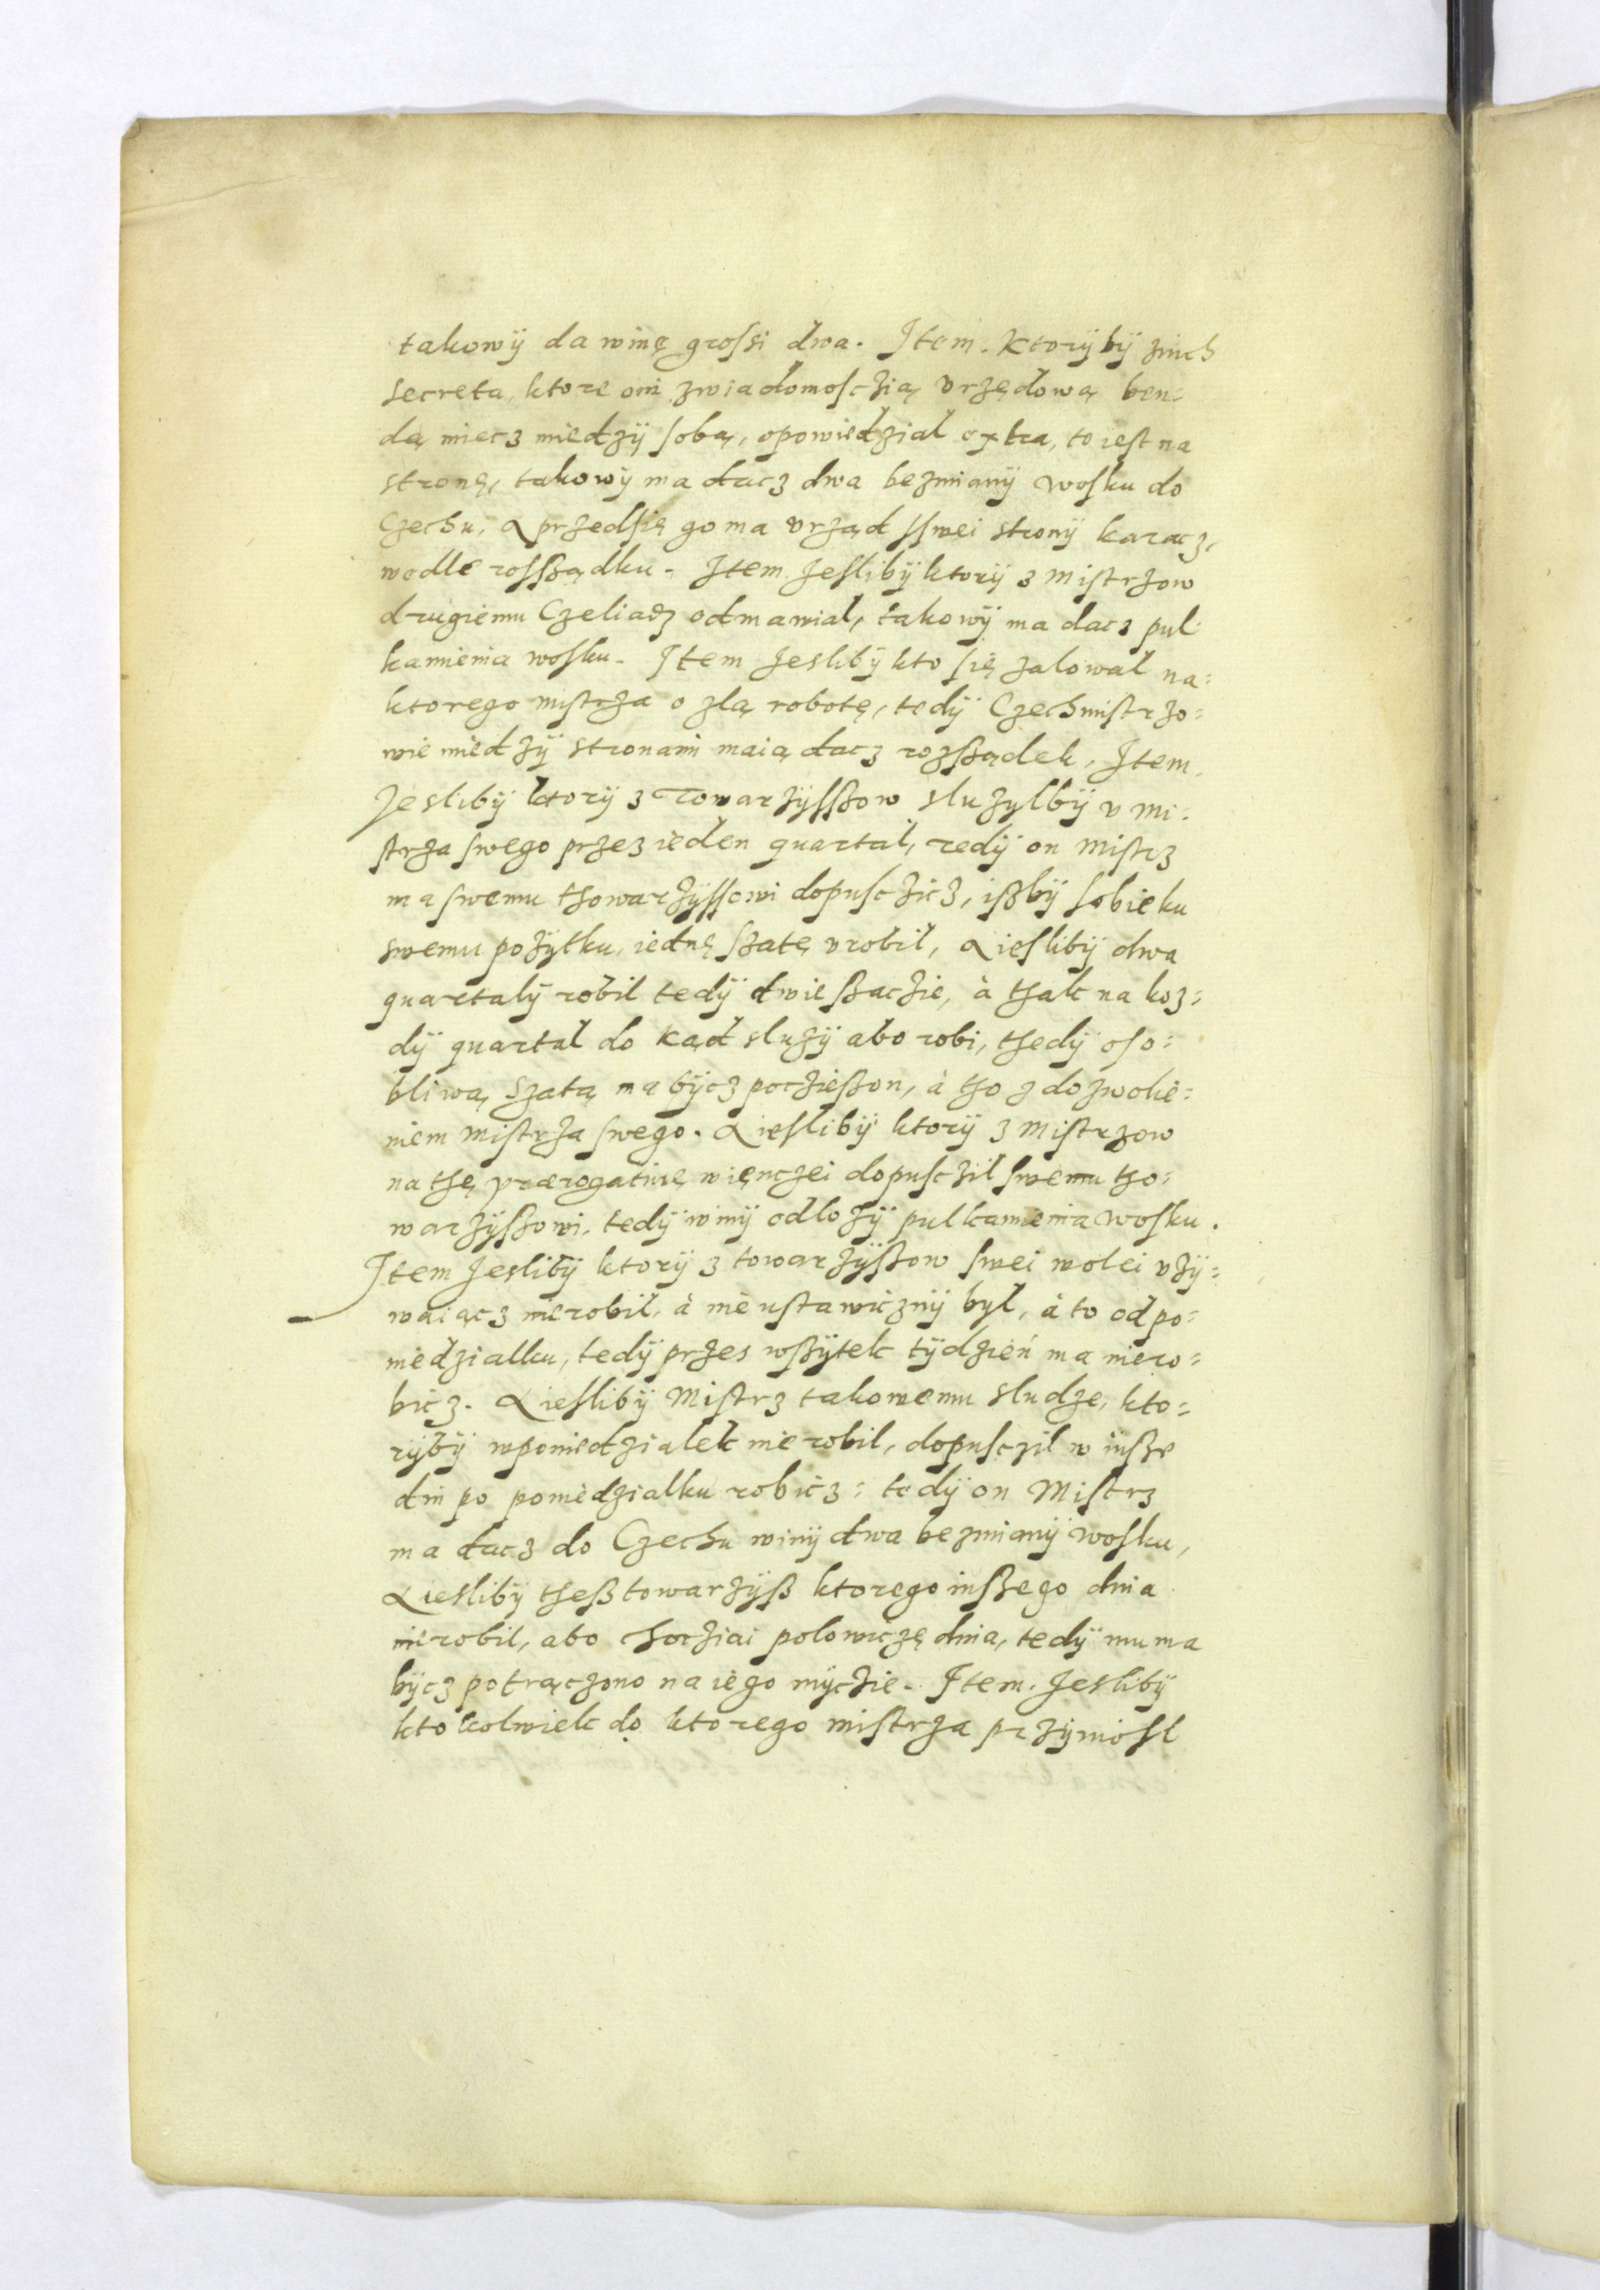 takowÿ da winę grossi dwa. Item. Ktorÿ bÿ znich
secreta, ktore oni zwiadomosczią vrzędową ben=
dą miecz miedzÿ sobą, opowiedzial extra, to iest na
stronę, takowÿ ma dacz dwa bezmianÿ wosku do
Czechu, A przedsię go ma vrząd sswei stronÿ karacz,
wedle rosßądku. Item Jeslibÿ ktorÿ z Mistrzow
drugiemu Czeliadz odmawial, takowÿ ma dacz pul
kamienia wosku. Item Jeslibÿ kto się zalowal na=
ktorego mistrza o zlą robotę, tedÿ Czechmistrzo=
wie miedzÿ stronami maią dacz rozsßądek, Item
Jeslibÿ ktorÿ z Towarzÿsßow sluzylbÿ v Mi=
strza swego przez ieden quartal, tedÿ on Mistrz
ma swemu thowarzÿssowi dopusczicz, ißbÿ sobie ku
swemu pozÿtku, iednę szatę vrobil, A ieslibÿ dwa
quartalÿ robil tedÿ dwie ßaczie, à thak na koz=
dÿ quartal do kąd sluzÿ abo robi, thedÿ oso=
bliwą szatą ma bÿcz poczießon, à tho z dozwole=
niem mistrza swego. A ieslibÿ ktorÿ z Mistrzow
na thę prærogatiwę więnczei dopusczil swemu tho=
warzÿsßowi, tedÿ winÿ odlozÿ pul kamienia wosku.
Item Jeslibÿ ktorÿ z towarzÿßow swei wolei vzÿ=
waiącz nierobil, à nie ustawicznÿ byl, à to od po=
niedzialku, tedÿ przes wßÿtek tÿdzień ma niero=
bicz. A ieslibÿ Mistrz takowemu sludze, kto=
rÿbÿ wponiedzialek nie robil, dopusczil w inßze
dni po poniedzialku robicz: tedÿ on Mistrz
ma dacz do Czechu winÿ dwa bezmianÿ wosku,
A ieslibÿ theß towarzÿß ktorego inßego dnia
nierobil, abo chocziai polowiczę dnia, tedÿ mu ma
bÿcz potrączono na iego mÿczie. Item. Jeslibÿ
kto kolwiek do ktorego mistrza przÿniosl